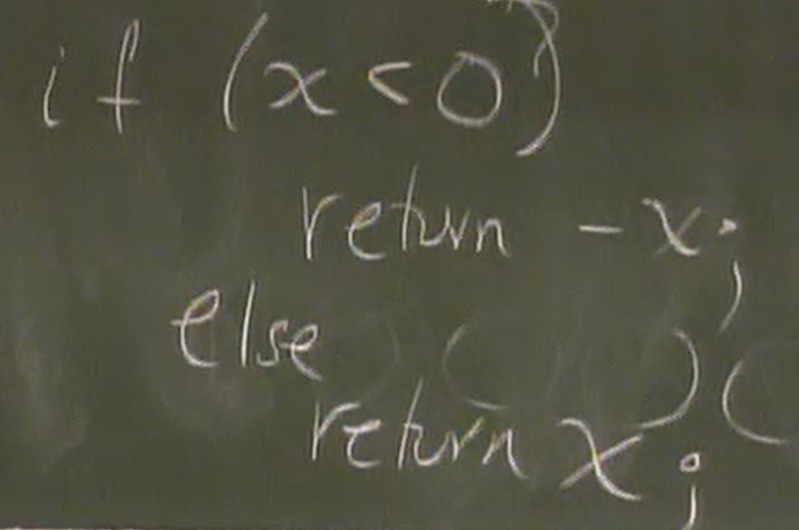 if (x < 0)
return -x;
else
return x;